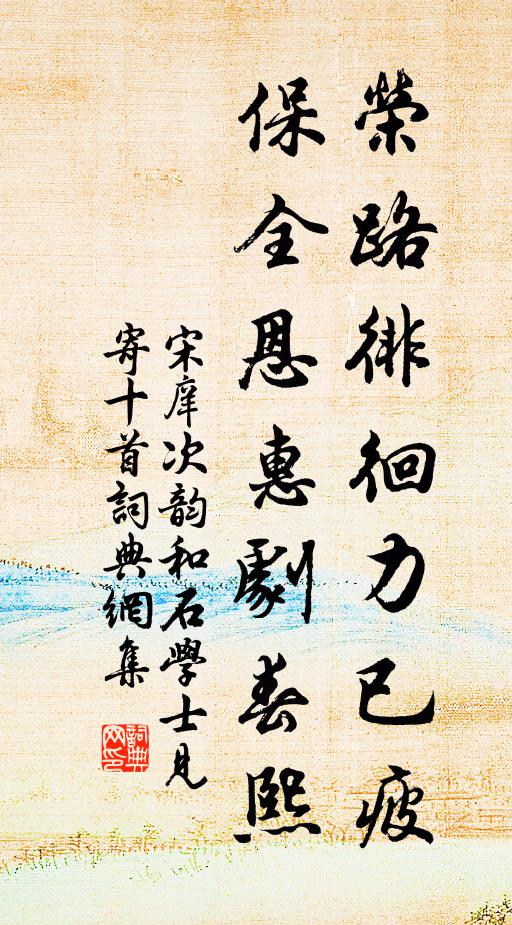 榮路徘徊力已疲
保全恩惠劇春熙
宋庠次韵和石學士見
寄十首詞典網集
詞典
网印